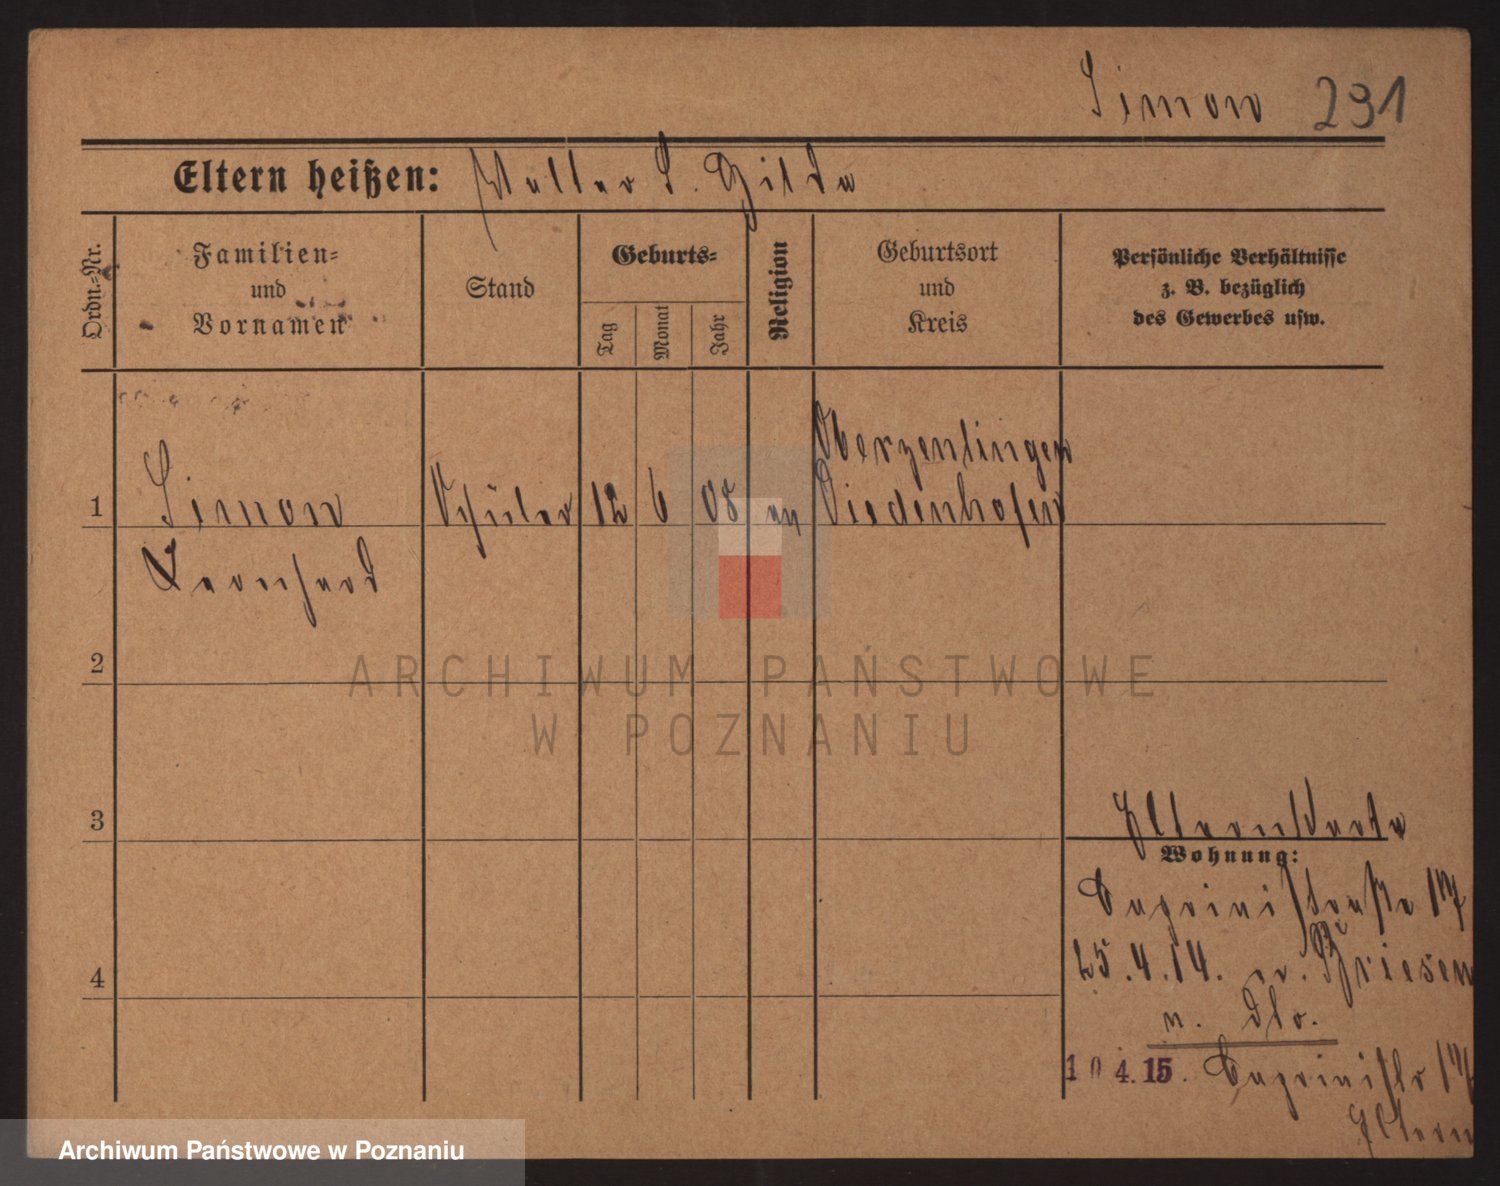 Simon 291
Eltern heißen: Walter S. Hilda
Ordn.-Nr.
Familien-
und
Vornamen
Stand
Geburts-
Tag
Monat
Jahr
Religion
Geburtsort
und
Kreis
Persönliche Verhältnisse
z. B. bezüglich
des Gewerbes usw.
1 Simon Schüler 12 6 08 Diedenhofen
Leonhard
2
3
Elternkarte
Wohnung:
4
Caprivistraße 17
25.4.14. v. Briesen
n.
10 4. 15. Caprivistr 17
Eltern
ARCHIWUM PAŃSTWOWE
W POZNANIU
Archiwum Państwowe w Poznaniu